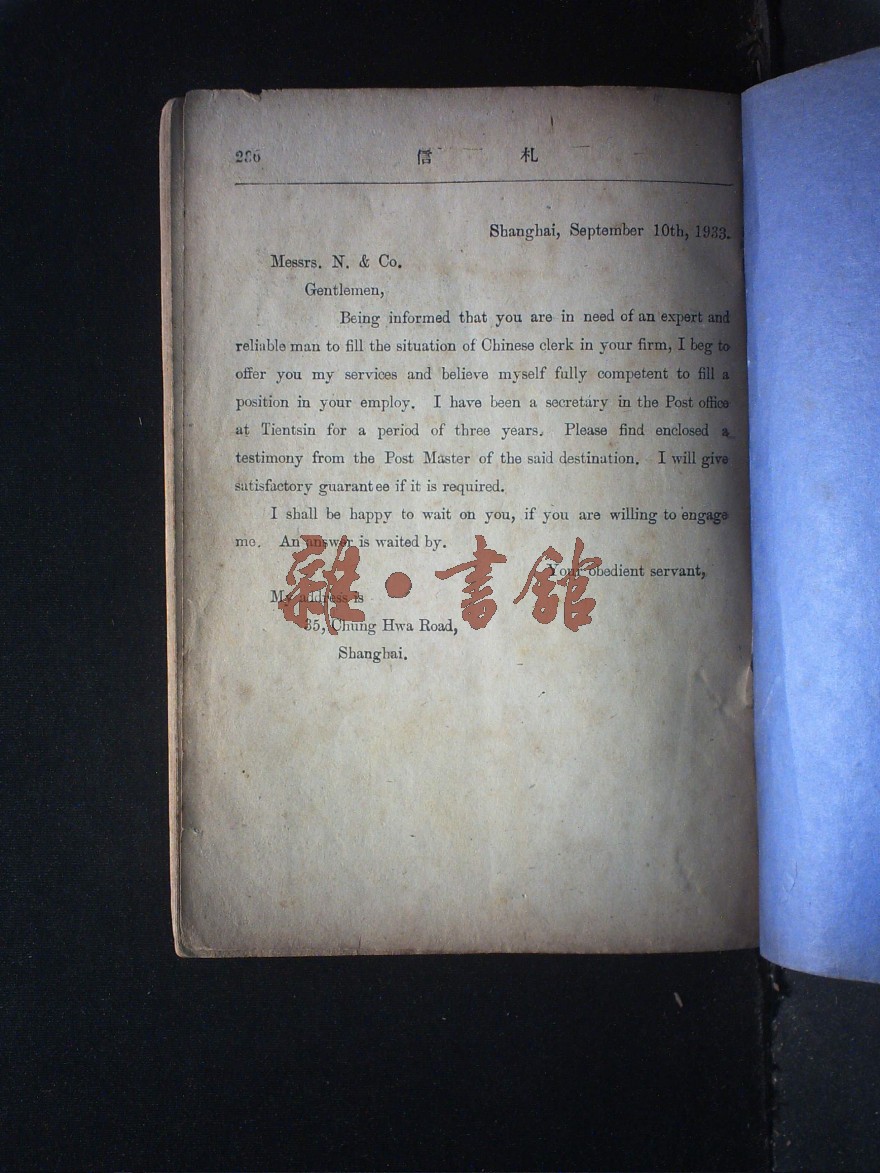 286 信 札
Shanghai, September 10th, 1933.
Messrs. N. & Co.
Gentlemen,
Being informed that you are in need of an expert and
reliable man to fill the situation of Chinese clerk in your firm, I beg to
offer you my services and believe myself fully competent to fill a
position in your employ. I have been a secretary in the Post office
at Tientsin for a period of three years. Please find enclosed a
testimony from the Post Master of the said destination. I will give
satisfactory guarantee if it is required.
I shall be happy to wait on you, if you are willing to engage
me. An answer is waited by.
Your obedient servant,
My address is
35, Chung Hwa Road,
Shanghai.
雜·書館